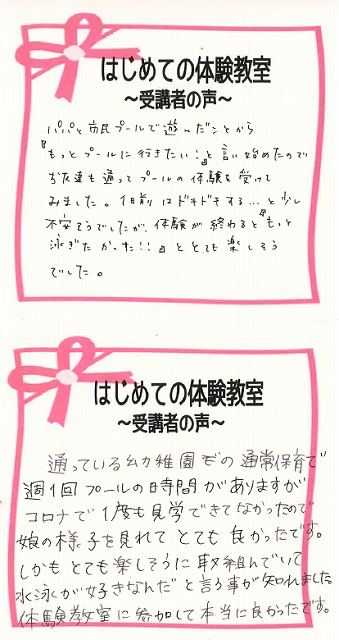 はじめての体験教室
～受講者の声～
パパと市民プールで遊んだことから
『もっとプールに行きたい!』と言い始めたので
お友達も通ってプールの体験を受けて
みました。1日前はドキドキする…と少し
不安そうでしたが、体験が終わると『もっと
泳ぎたかった!!』ととても楽しそう
でした。
はじめての体験教室
～受講者の声～
通っている幼稚園での通常保育で
週1回プールの日時間がありますが
コロナで1度も見学できてなかったので
娘の様子を見れてとても良かったです。
しかもとても楽しそうに取組んでいて
水泳が好きなんだと言う事が知れました
体験教室に参加して本当に良かったです。